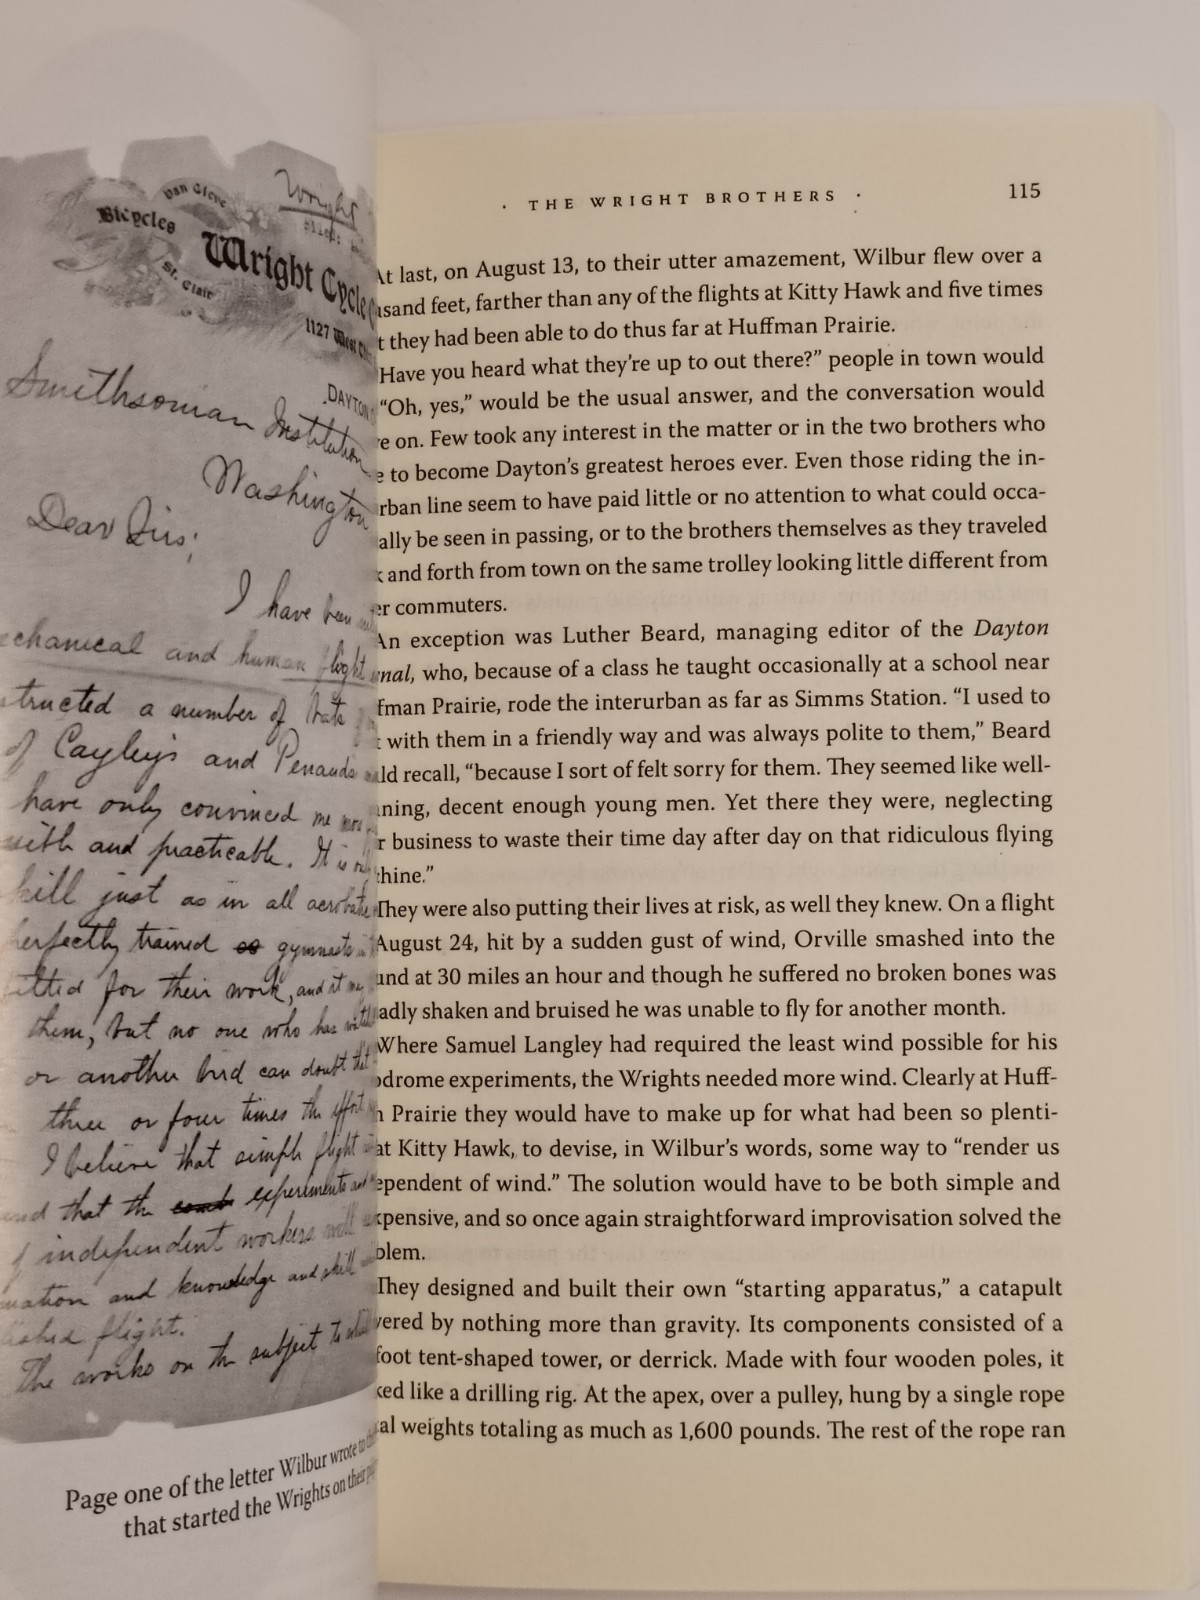 Wright
Van Cleve
Bicycles
St. Clair
Wright Cycle
1127 West
DAYTON
Smithsonian Institution
Washington
Dear Sirs;
I have been
mechanical and human flight
structed a number of
of Cayley's and Penaud's
have only convinced me
and practicable. It is
skill just as in all acrobatic
perfectly trained gymnasts
fitted for their work, and it
them, but no one who has
or another bird can doubt that
three or four times the effort
I believe that simple flight
and that the experiments and
of independent workers will
mation and knowledge and skill
lished flight.
The works on the subject to which
Page one of the letter Wilbur wrote to
that started the Wrights on their
· THE WRIGHT BROTHERS ·
115
At last, on August 13, to their utter amazement, Wilbur flew over a
usand feet, farther than any of the flights at Kitty Hawk and five times
t they had been able to do thus far at Huffman Prairie.
“Have you heard what they’re up to out there?” people in town would
“Oh, yes,” would be the usual answer, and the conversation would
e on. Few took any interest in the matter or in the two brothers who
e to become Dayton’s greatest heroes ever. Even those riding the in-
rban line seem to have paid little or no attention to what could occa-
ally be seen in passing, or to the brothers themselves as they traveled
k and forth from town on the same trolley looking little different from
er commuters.
An exception was Luther Beard, managing editor of the Dayton
nal, who, because of a class he taught occasionally at a school near
fman Prairie, rode the interurban as far as Simms Station. “I used to
t with them in a friendly way and was always polite to them,” Beard
ld recall, “because I sort of felt sorry for them. They seemed like well-
ning, decent enough young men. Yet there they were, neglecting
r business to waste their time day after day on that ridiculous flying
chine.”
They were also putting their lives at risk, as well they knew. On a flight
August 24, hit by a sudden gust of wind, Orville smashed into the
und at 30 miles an hour and though he suffered no broken bones was
adly shaken and bruised he was unable to fly for another month.
Where Samuel Langley had required the least wind possible for his
odrome experiments, the Wrights needed more wind. Clearly at Huff-
n Prairie they would have to make up for what had been so plenti-
at Kitty Hawk, to devise, in Wilbur’s words, some way to “render us
ependent of wind.” The solution would have to be both simple and
xpensive, and so once again straightforward improvisation solved the
blem.
They designed and built their own “starting apparatus,” a catapult
vered by nothing more than gravity. Its components consisted of a
foot tent-shaped tower, or derrick. Made with four wooden poles, it
ked like a drilling rig. At the apex, over a pulley, hung by a single rope
al weights totaling as much as 1,600 pounds. The rest of the rope ran